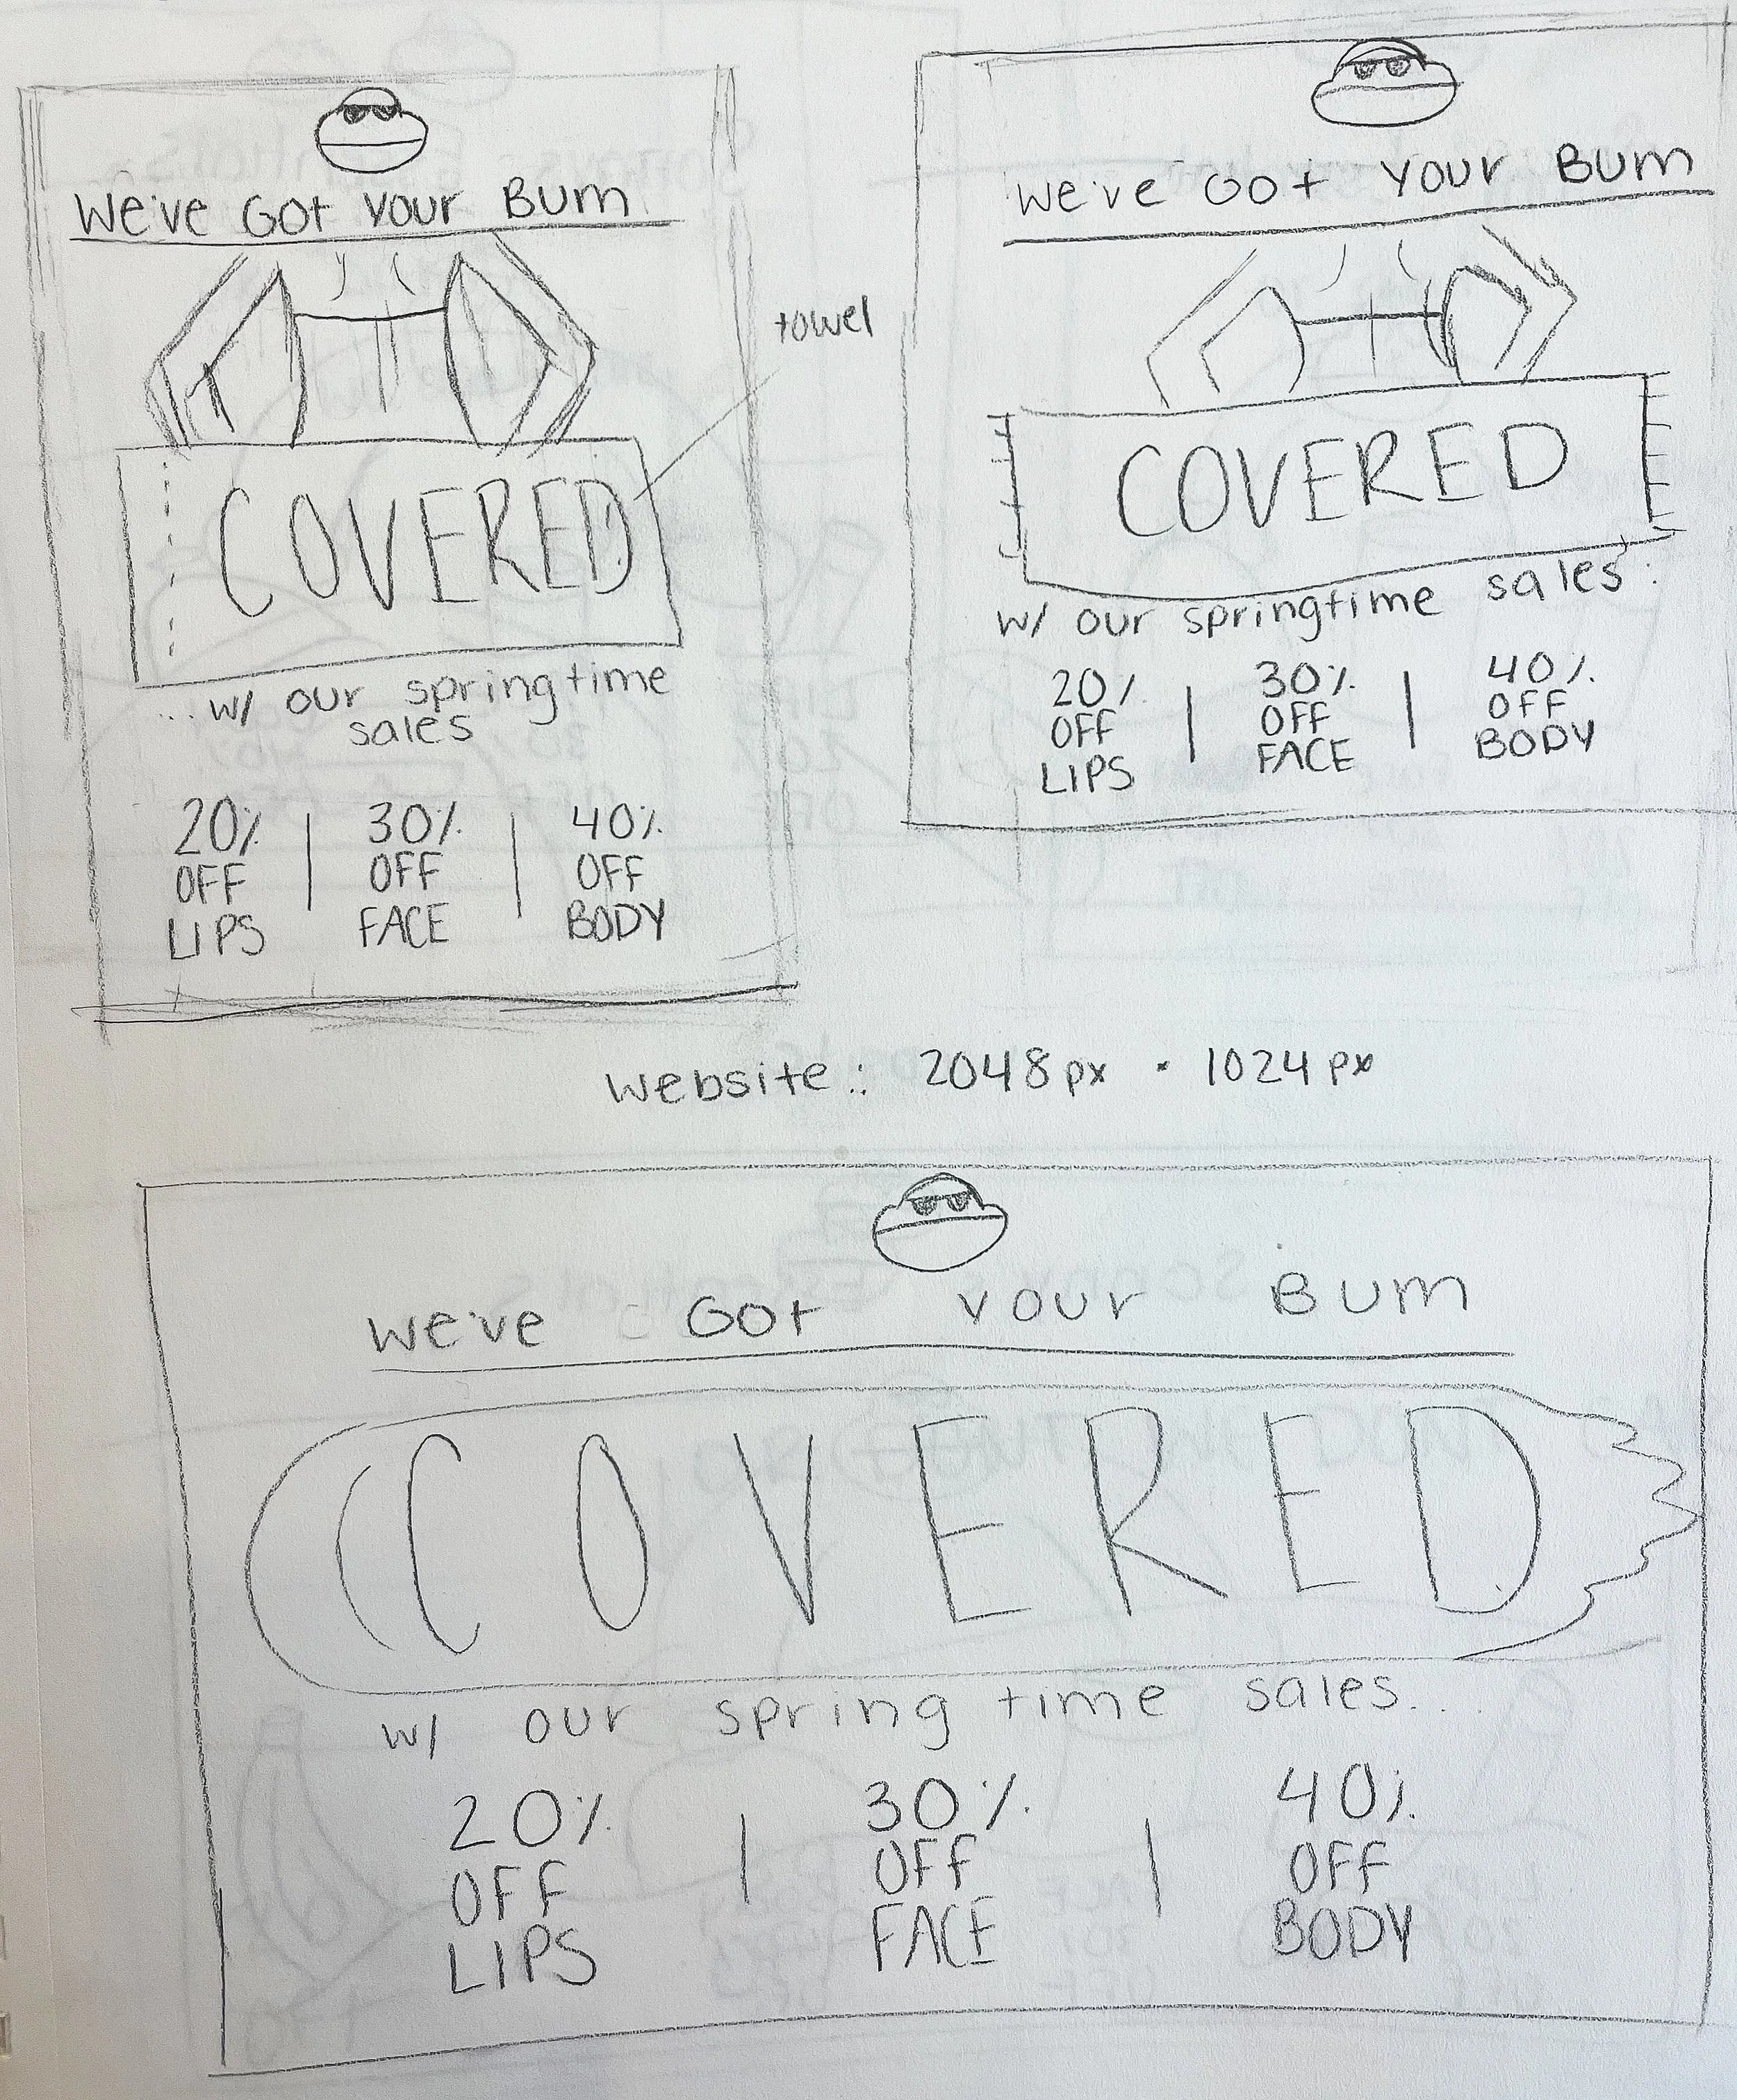 We've Got Your Bum
COVERED
...w/ our springtime
sales
20% | 30% | 40%
OFF OFF OFF
LIPS FACE BODY
towel
We've Got Your Bum
COVERED
w/ our springtime sales:
20% | 30% | 40%
OFF OFF OFF
LIPS FACE BODY
Website: 2048px · 1024px
We've Got Your Bum
COVERED
w/ our spring time sales...
20% | 30% | 40%
OFF OFF OFF
LIPS FACE BODY